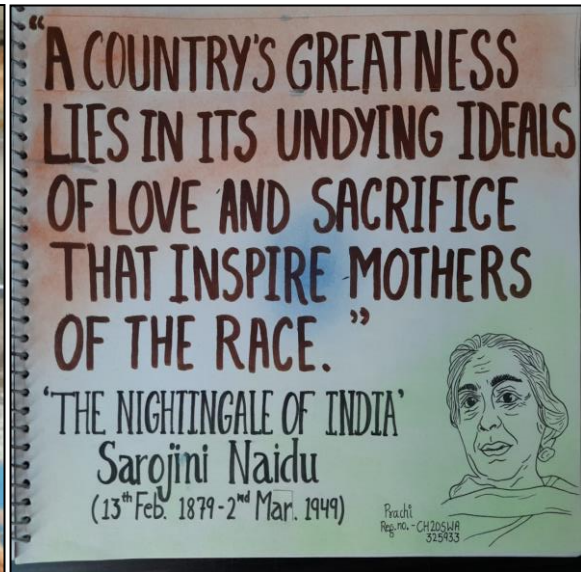 “A COUNTRY'S GREATNESS
LIES IN ITS UNDYING IDEALS
OF LOVE AND SACRIFICE
THAT INSPIRE MOTHERS
OF THE RACE.”
'THE NIGHTINGALE OF INDIA'
Sarojini Naidu
(13th Feb. 1879-2nd Mar. 1949)
Prachi
Reg.no.-CH20SWA
325933